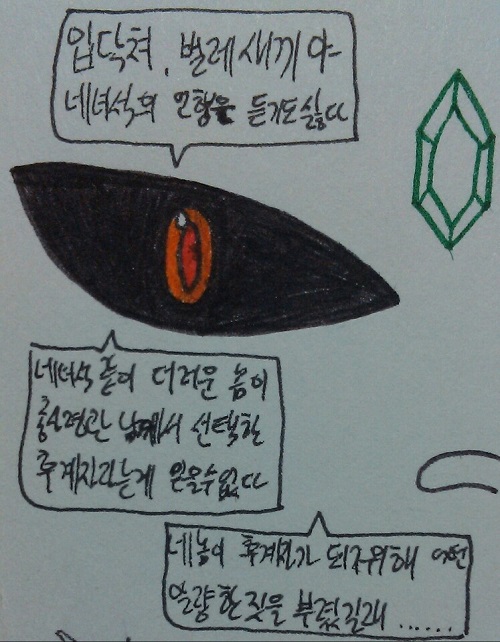 입닥쳐, 벌레새끼야-
네녀석의 언행을 듣기도싫다
네녀석 같이 더러운 놈이
훌륭한 님께서 선택한
후계자라는게 믿을수없다
네놈이 후계자가 되기위해 어떤
알량한짓을 부렸길래 ......